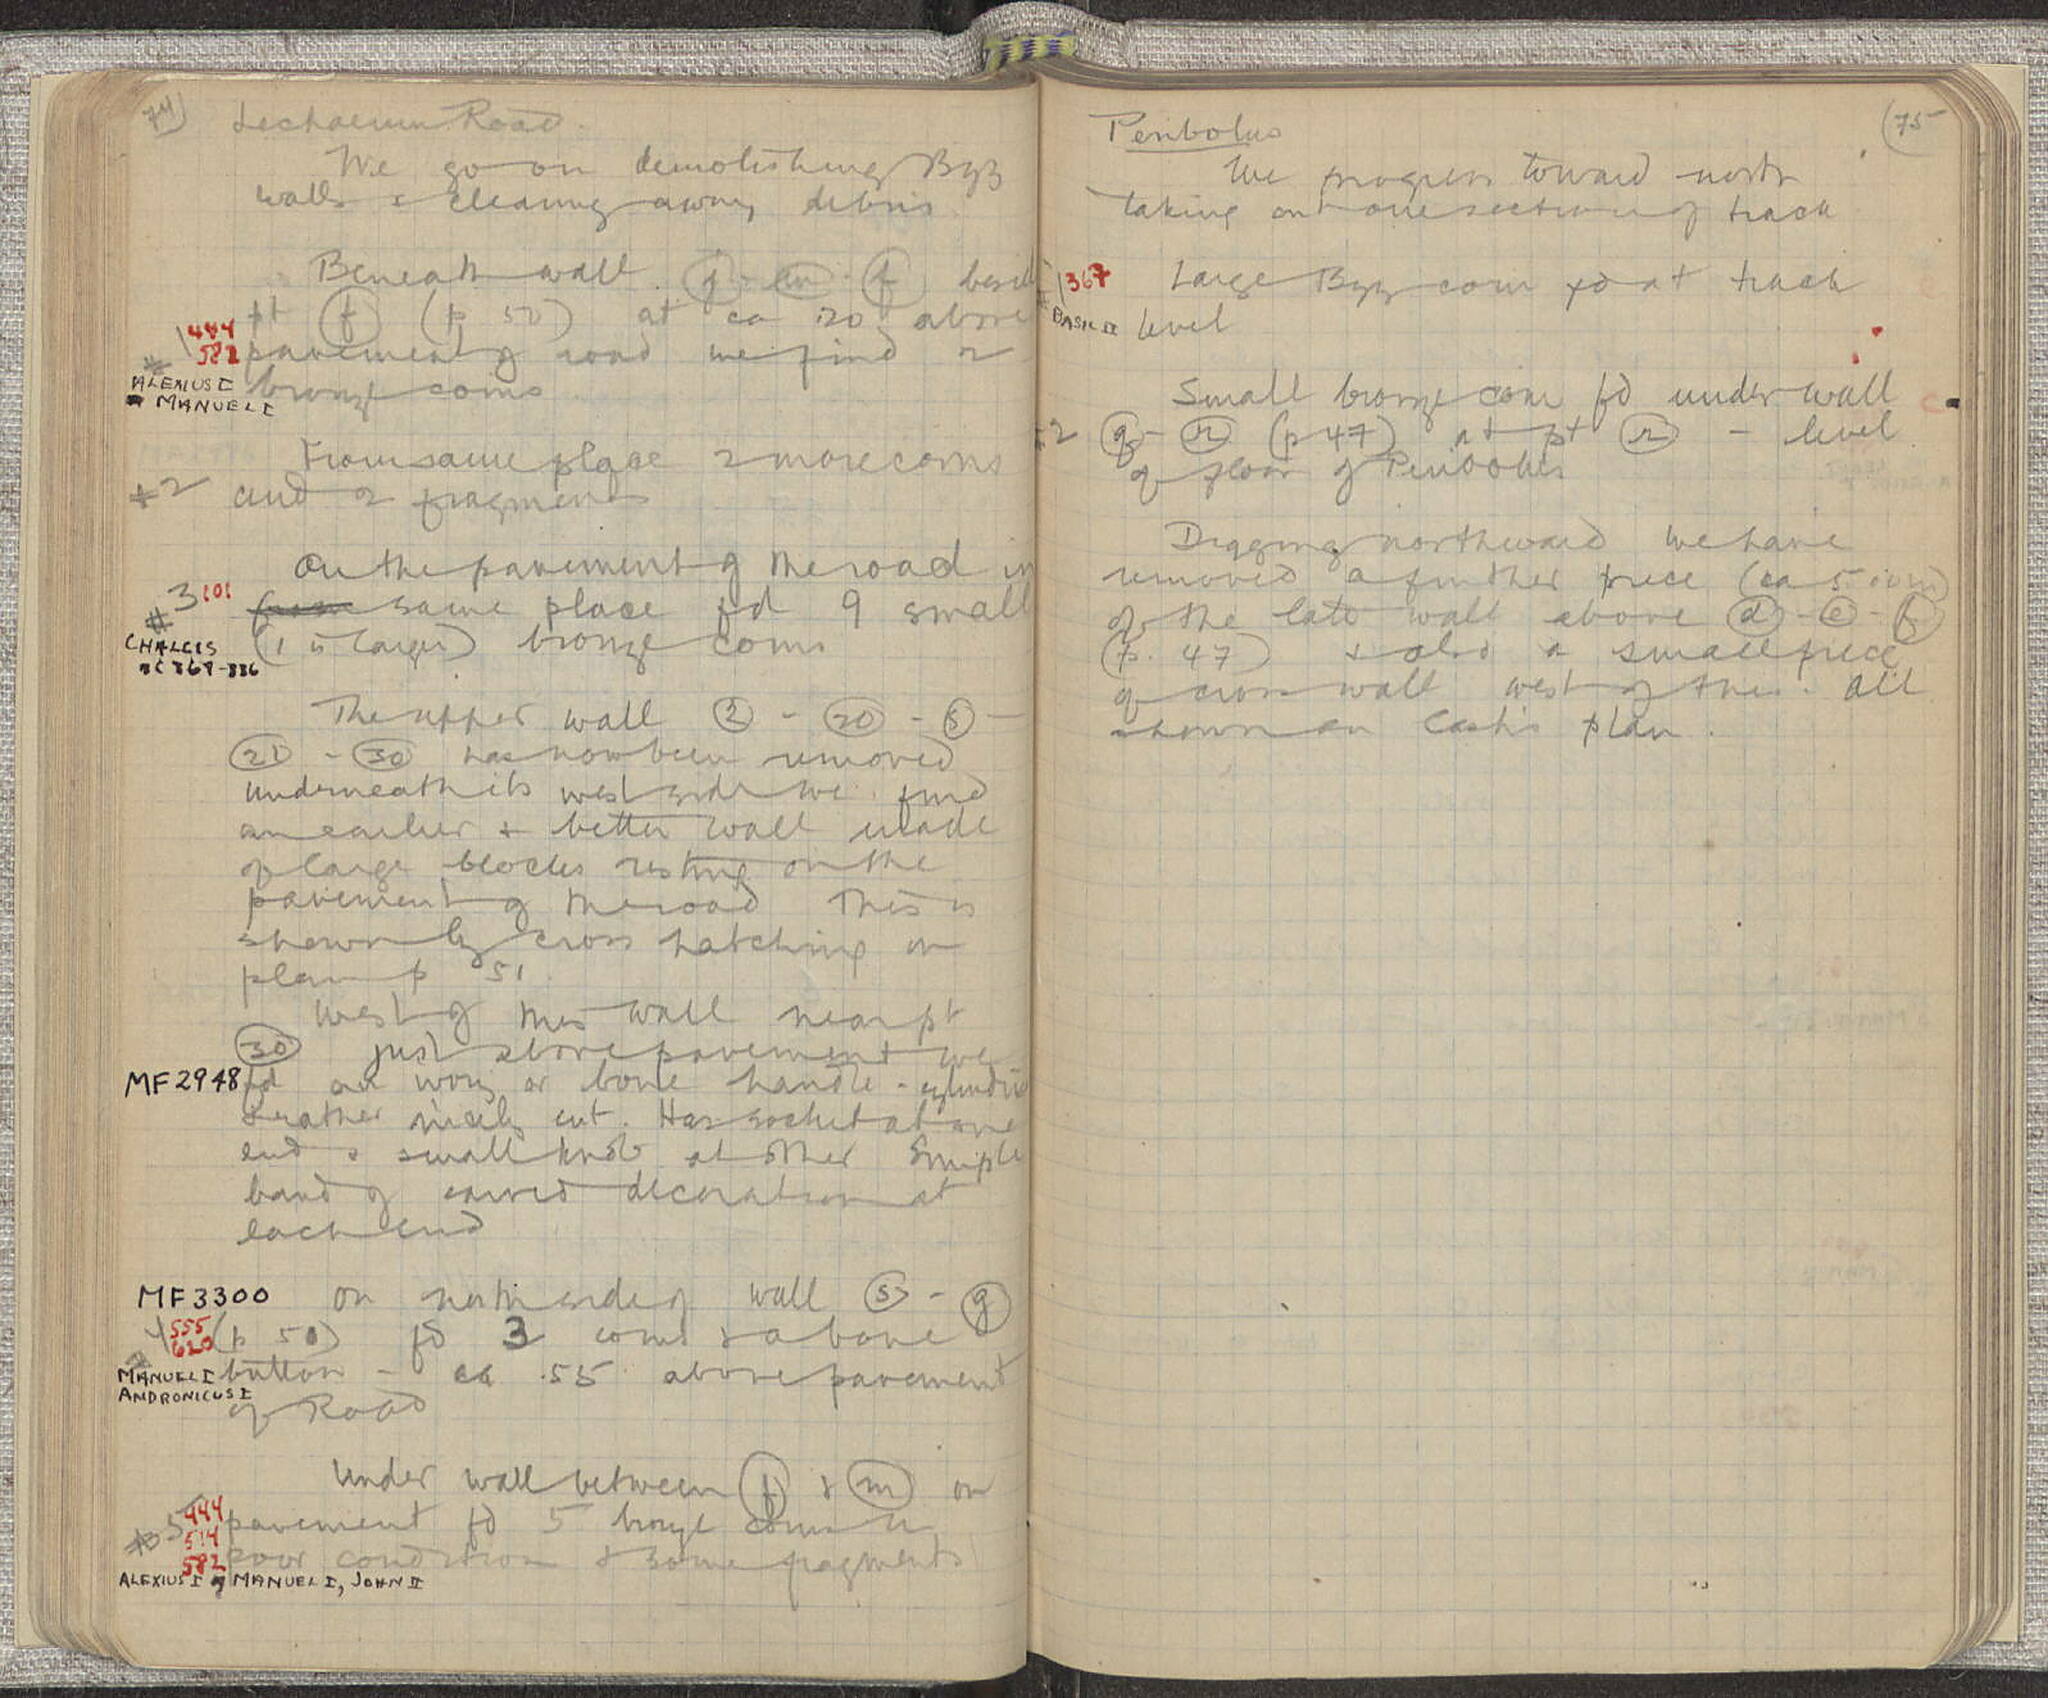 74)
Lechaeum Road.
We go on demolishing Byz
walls & clearing away debris
Beneath wall g - m - f beside
pt f (p 50) at ca .20 above
1 444
582
pavement of road we find 2
#
ALEXIUS I
MANUEL I
bronze coins
From same place 2 more coins
#2 and 2 fragments
On the pavement of the road in
#3 101
from same place fd 9 small
CHALCIS
BC 369-336
(1 is larger) bronze coins
The upper wall 2 - 20 - S -
21 - 30 has now been removed
underneath its west side we find
an earlier & better wall made
of large blocks resting on the
pavement of the road This is
shown by cross hatching on
plan p 51.
West of this wall near pt
30 just above pavement we
MF2948 fd an ivory or bone handle - cylindrical
& rather nicely cut. Has socket at one
end & small knob at other Simple
band of carved decoration at
each end
MF3300 On north side of wall S - g
4 555
620
(p 50) fd 3 coins & a bone
#
MANUEL I
ANDRONICUS I
button - ca .55 above pavement
of Road
Under wall between f & m on
#5 444
514
582
pavement fd 5 bronze coins in
poor condition & some fragments
ALEXIUS I, MANUEL I, JOHN II
(75
Peribolus
We progress toward north
taking out one section of track
1 367
#
BASIL II
Large Byz coin fd at track
level
Small bronze coin fd under wall
#2 q - r (p 47) at pt r - level
of floor of Peribolus
Digging northward we have
removed a further piece (ca 5.00m)
of the late wall above d - e - f
(p. 47) & also a small piece
of cross wall west of this. All
shown on Cash's plan.